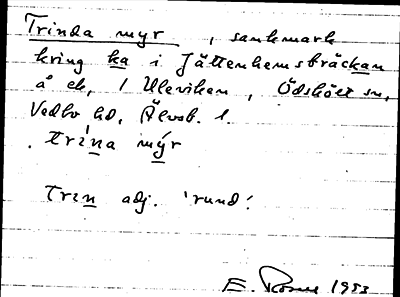 Trinda myr, sankmark
kring ka i Jättenhemsbräckan
å ek. 1 Uleviken, Ödskölt sn,
Vedbo hd, Älvsb. l.
trína mýr
Trin adj. 'rund'.
E. 1953